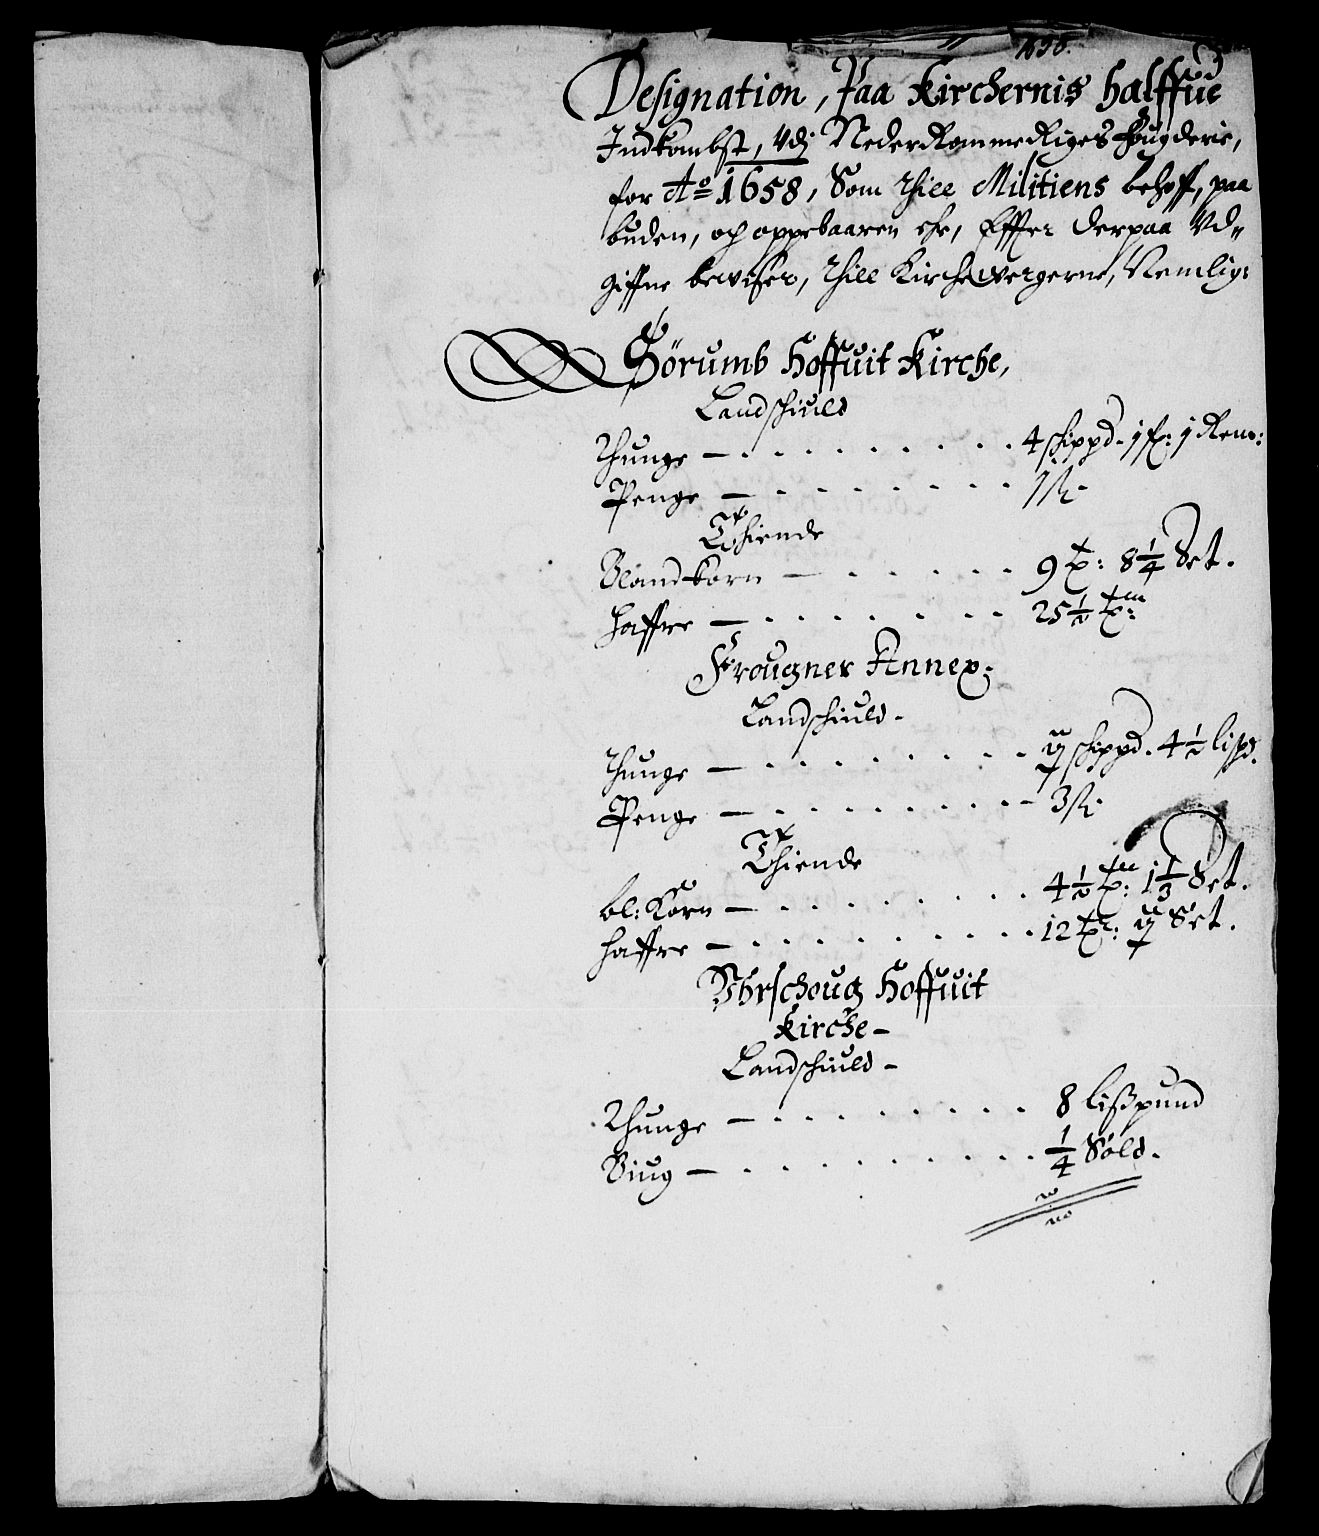 1658.
Designation, Paa Kirchernis halffue
Indkombst, Vdj NederRommeRiges Fougderie,
for Ao 1658, Som thill Militiens behoff, paa
buden, och oppebaaren ehr, Effter derpaa Vd"
giffne beviser, thill Kirchewergerne, Nemlig:
Sörumb Hoffuit Kirche,
Landschiuld
Thunge — 4 schippd. 1 f: 1 Rem:
Penge — 1 ß.
Thiende
Blandkorn — 9 t: 8 1/4 Set.
Haffre — 25 1/2 t:
Frougner Annex:
Landschiuld -
Thunge — schippd. 4 1/2 lispd.
Penge — 3 ß.
Thiende
bl: Korn — 4 1/2 t: 1 1/3 Set.
Haffre — 12 tr: Set.
Vhrschoug Hoffuit
Kirche -
Landschiuld -
Thunge — 8 lißpund
Biug — 1/4 Söld.